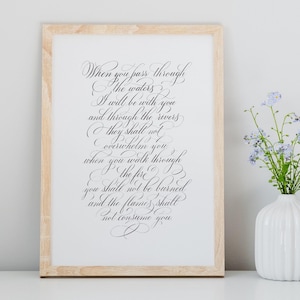 When you pass through
the waters
I will be with you
and through the rivers
they shall not
overwhelm you
when you walk through
the fire
you shall not be burned
and the flames shall
not consume you